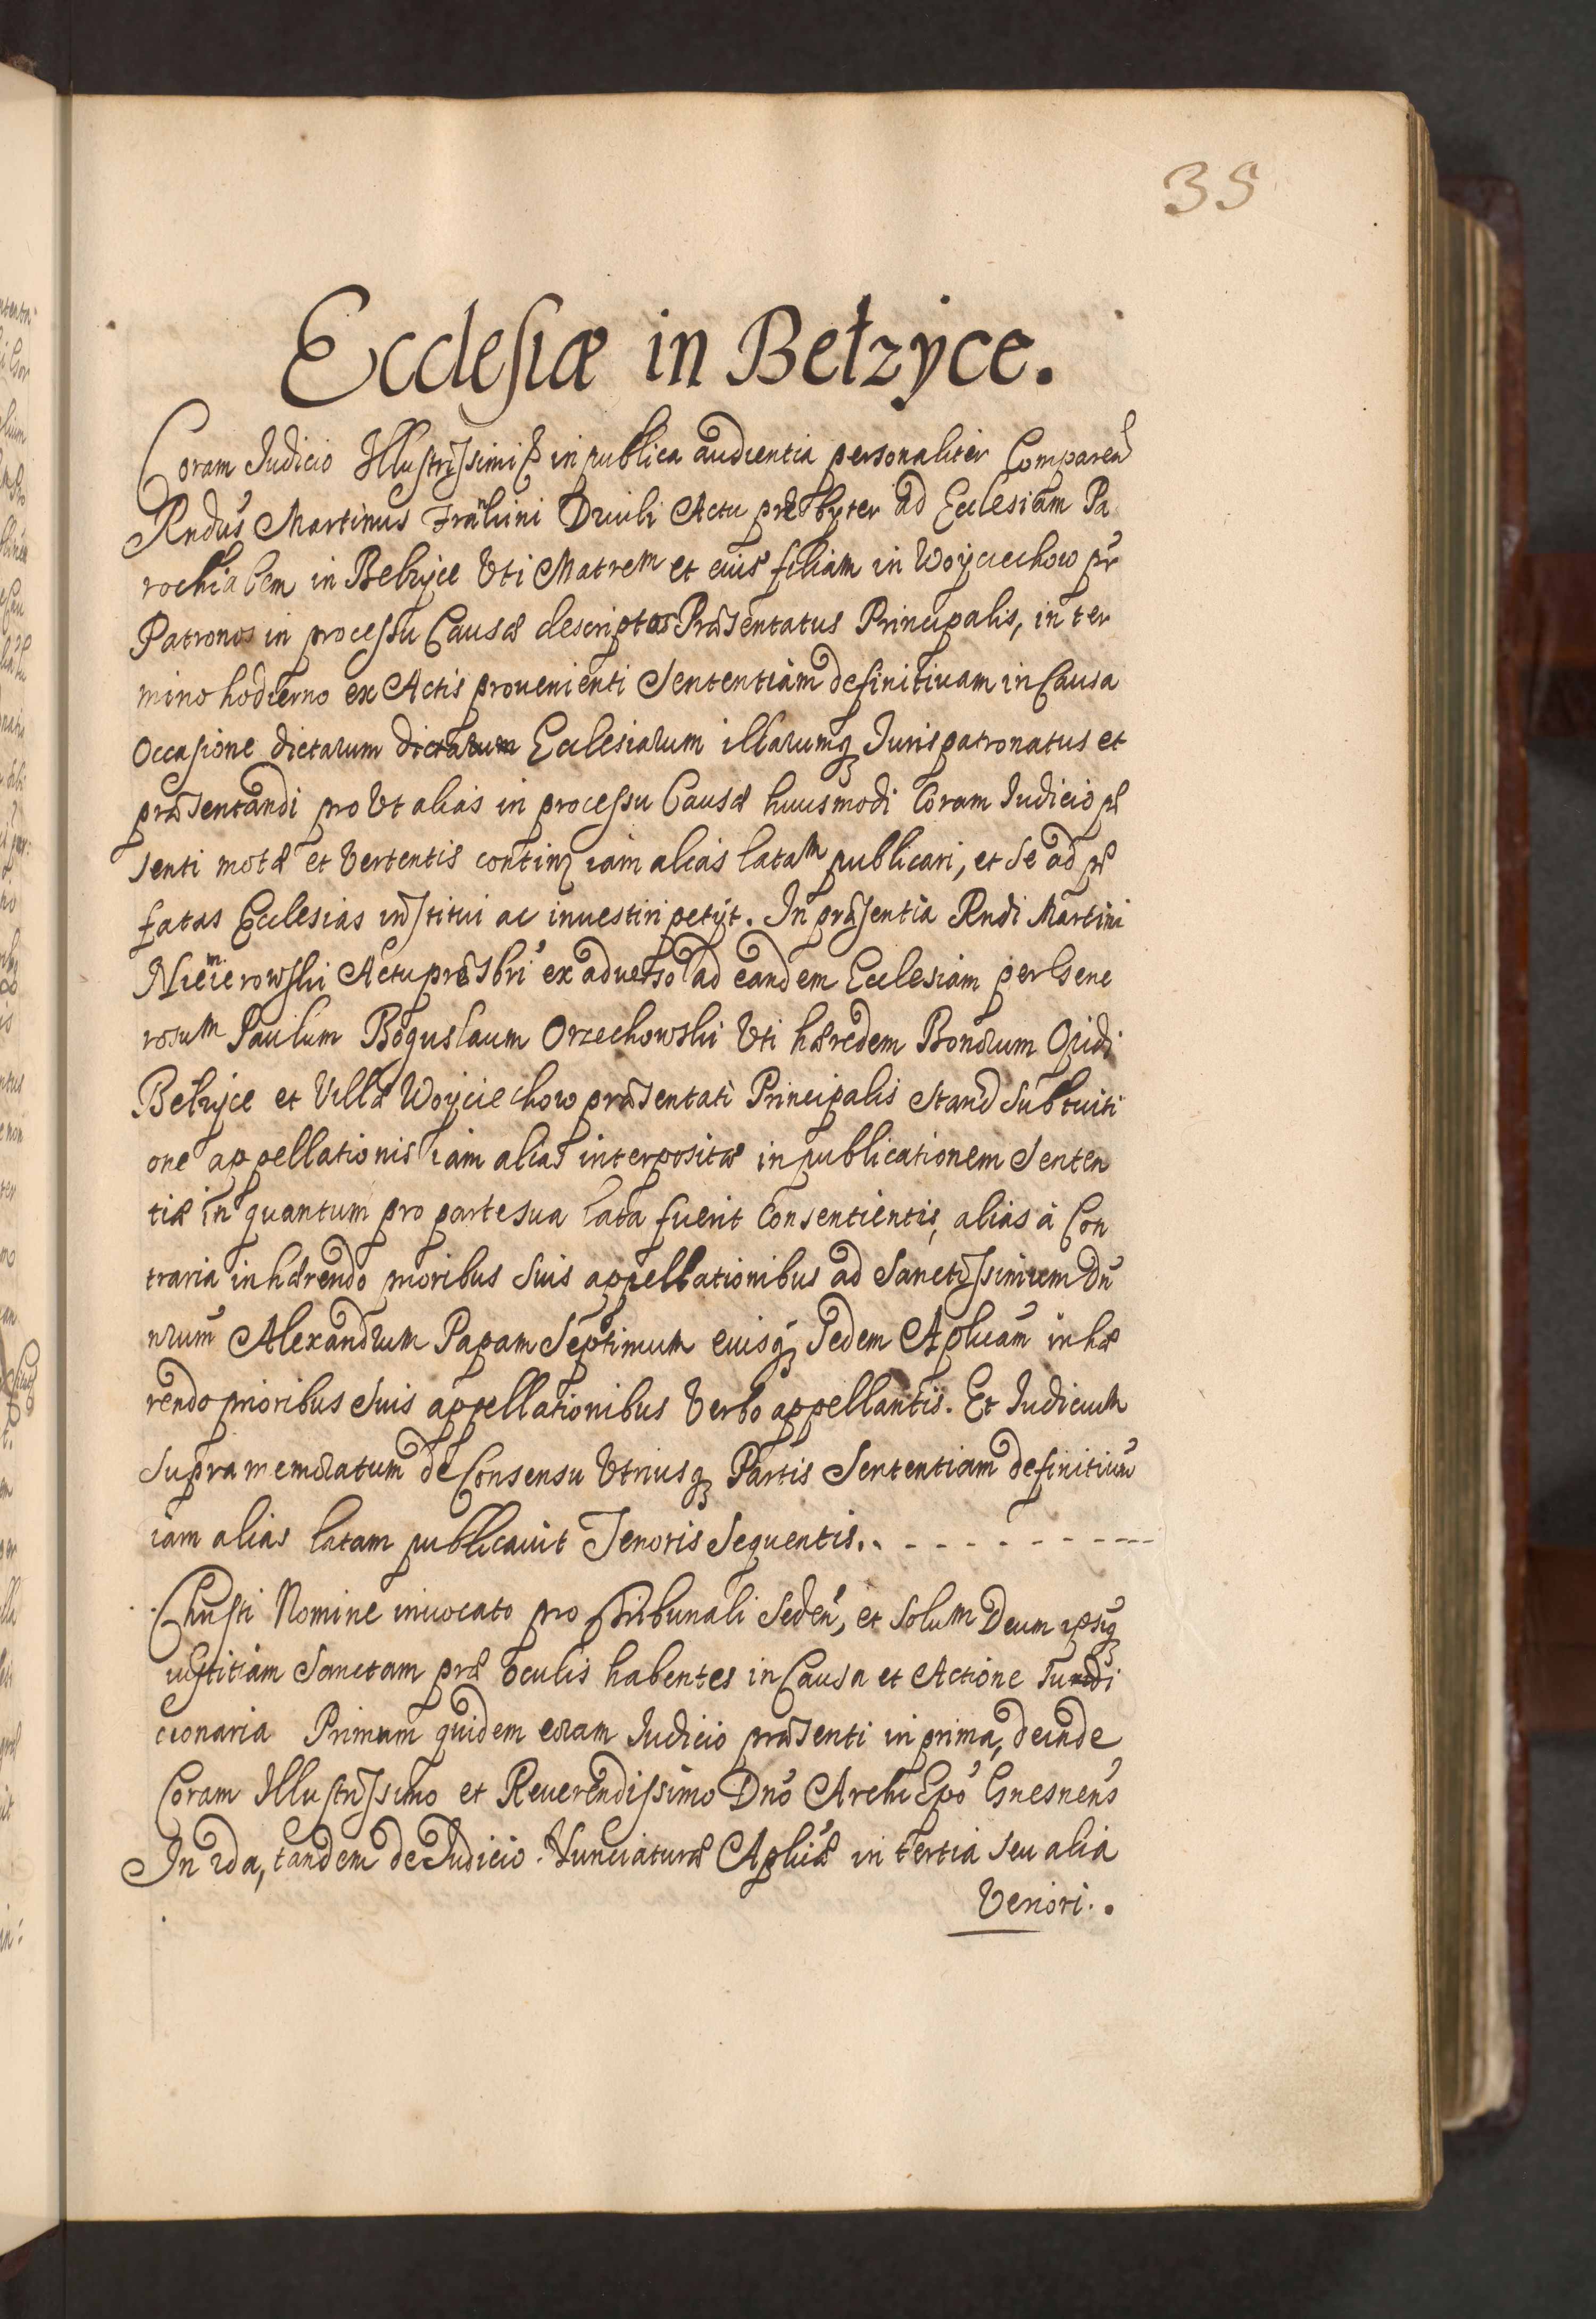 35
Ecclesiæ in Bełzyce.
Coram Judicio Illustrissimi in publica audientia personaliter Comparen
Rndus Martinus Actu præsbyter ad Ecclesiam Pa
rochialem in Belzyce Uti Matrem et eius filiam in Woyciechow pr
Patronos in processu Causæ descriptos Præsentatus Principalis, in ter
mino hodierno ex Actis provenienti Sententiam definitivam in Causa
Occasione dictarum dictarum Ecclesiarum illarumq Jurispatronatus et
præsentandi pro Ut alias in processu Causæ huiusmodi Coram Judicio præ
senti motæ et Vertentis contin iam alias latam publicari, et se ad præ
fatas Ecclesias institui ac investiri petijt. In præsentia Rndi Martini
Actu præsbri ex adverso ad eandem Ecclesiam per Gene
rosum Paulum Boguslaum Orzechowski Uti hæredem Bonorum Opidi
Belzyce et Villæ Woyciechow præsentati Principalis Stand Sub tuiti
one appellationis iam alias interpositæ in publicationem Senten
tiæ in quantum pro parte sua lata fuerit Consentientis, alias à Con
traria inhærendo prioribus Suis appellationibus ad Sanctissimum Dn
nrum Alexandrum Papam Septimum eiusq Sedem Aplicam inhæ
rendo prioribus Suis appellationibus Verbo appellantis. Et Iudicium
Supra memoratum de Consensu Utriusq Partis Sententiam definitivam
iam alias latam publicavit Tenoris Sequentis..
Christi Nomine invocato pro Tribunali Seden, et Solum Deum ipsiq
iustitiam Sanctam præ oculis habentes in Causa et Actione Juredi
cionaria Primum quidem coram Iudicio præsenti in prima, deinde
Coram Illustrissimo et Reverendissimo Dno Archi Epo Gnesnens
In 2da, tandem de Judicio Nunciaturæ Apliæ in tertia seu alia
Veriori..